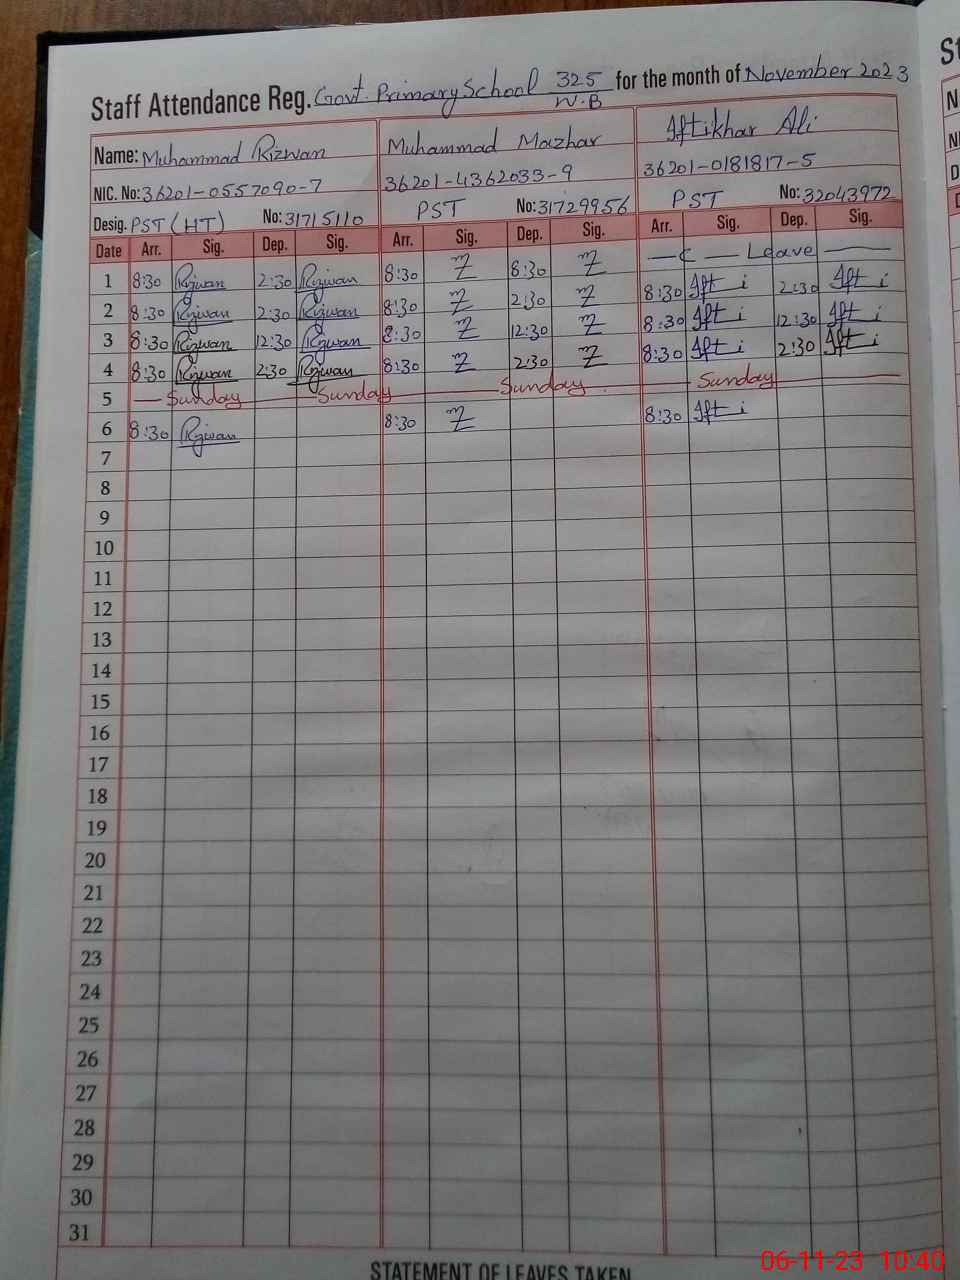 Staff Attendance Reg. Govt. Primary School 325/W.B for the month of November 2023
Name: Muhammad Rizwan Muhammad Mazhar Iftikhar Ali
NIC. No: 36201-0557090-7 36201-4362033-9 36201-0181817-5
Desig. PST (HT) No: 31715110 PST No: 31729956 PST No: 32043972
Date Arr. Sig. Dep. Sig. Arr. Sig. Dep. Sig. Arr. Sig. Dep. Sig.
1 8:30 Rizwan 2:30 Rizwan 8:30 8:30 — C — Leave —
2 8:30 Rizwan 2:30 Rizwan 8:30 2:30 8:30 Ift i 2:30 Ift i
3 8:30 Rizwan 12:30 Rizwan 8:30 12:30 8:30 Ift i 12:30 Ift i
4 8:30 Rizwan 2:30 Rizwan 8:30 2:30 8:30 Ift i 2:30 Ift i
5 — Sunday Sunday Sunday Sunday
6 8:30 Rizwan 8:30 8:30 Ift i
7
8
9
10
11
12
13
14
15
16
17
18
19
20
21
22
23
24
25
26
27
28
29
30
31
STATEMENT OF LEAVES TAKEN
06-11-23 10:40